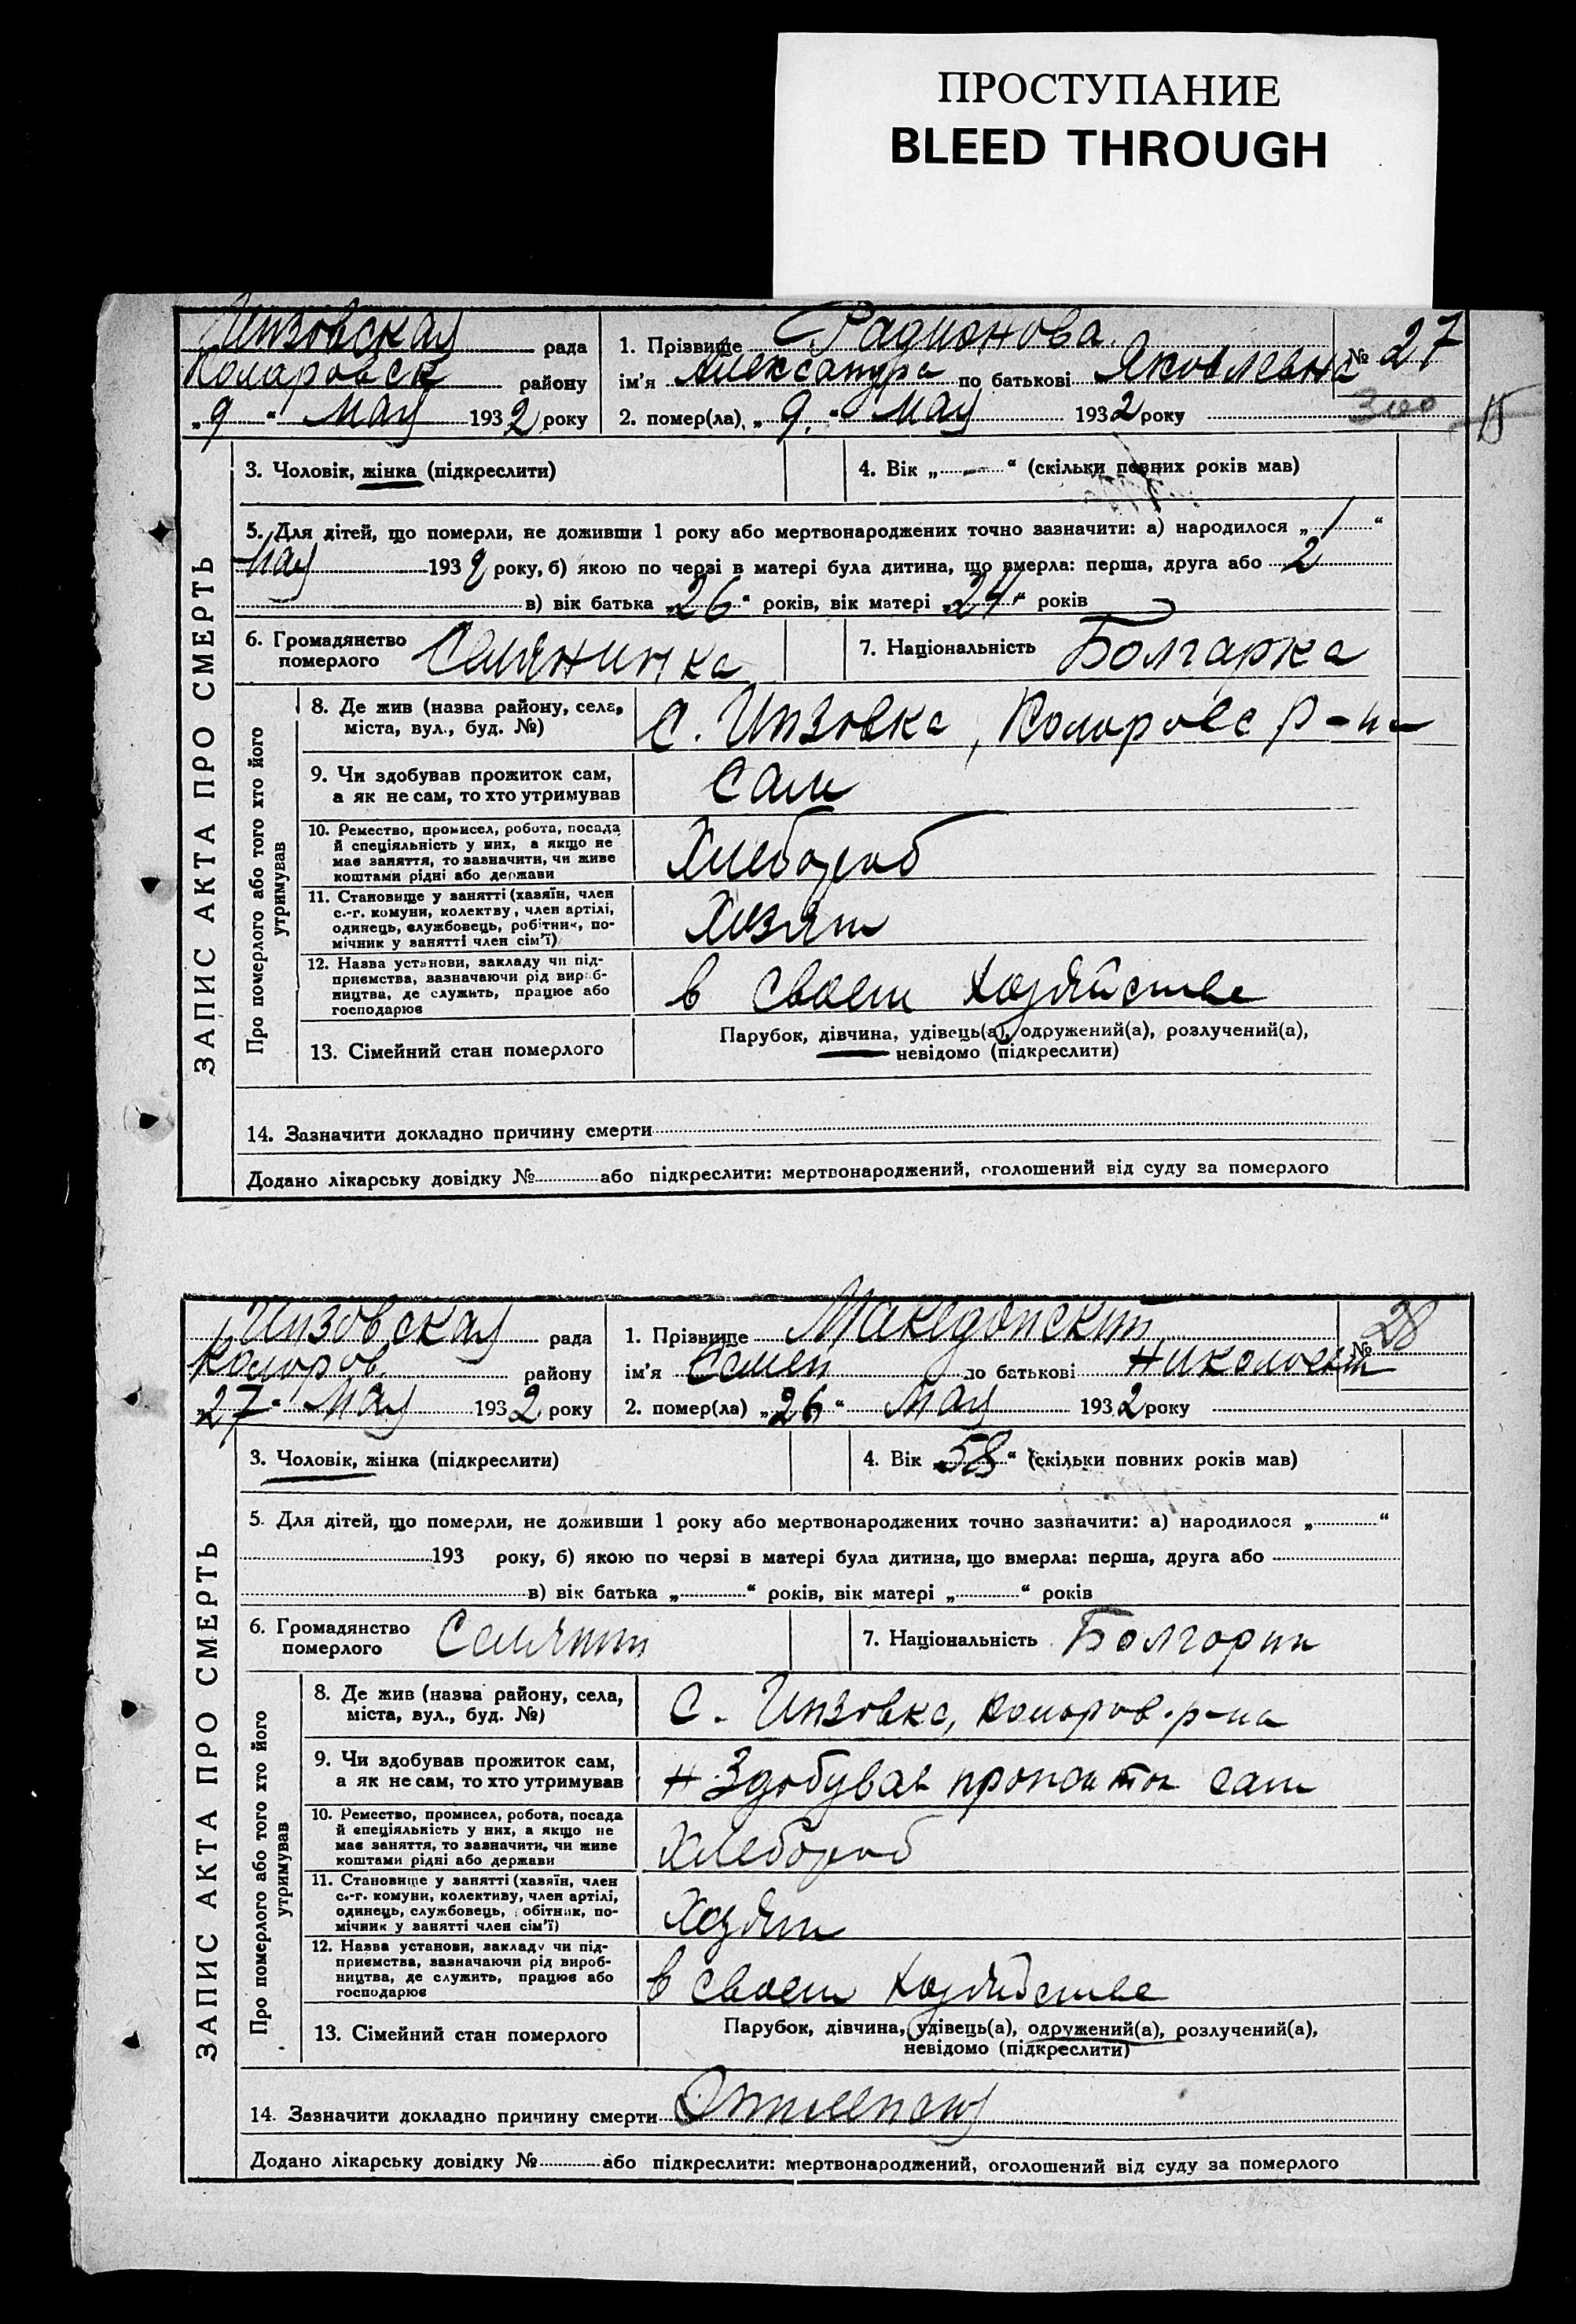 ПРОСТУПАНИЕ
BLEED THROUGH
Инзовская рада
Коларовск району
„9“ Мая 1932 року
1. Прізвище Радионова
ім'я Александра по батькові Яковлевна
№ 27
2. помер(ла) „9“ Мая 1932 року
3. Чоловік, жінка (підкреслити)
4. Вік „—“ (скільки повних років мав)
5. Для дітей, що померли, не доживши 1 року або мертвонароджених точно зазначити: а) народилося „1“
Мая 1932 року, б) якою по черзі в матері була дитина, що вмерла: перша, друга або 2
в) вік батька „26“ років, вік матері „24“ років
6. Громадянство
померлого
Селянинка
7. Національність Болгарка
ЗАПИС АКТА ПРО СМЕРТЬ
Про померлого або того хто його
утримував
8. Де жив (назва району, села,
міста, вул., буд. №)
С. Инзовка, Коларовс р-на
9. Чи здобував прожиток сам,
а як не сам, то хто утримував
Сам
10. Ремество, промисел, робота, посада
й спеціяльність у них, а якщо не
має заняття, то зазначити, чи живе
коштами рідні або держави
Хлебороб
11. Становище у занятті (хазяїн, член
с.-г. комуни, колектву, член артілі,
одинець, службовець, робітник, по-
мічник у занятті член сім'ї)
Хозяин
12. Назва установи, закладу чи під-
приємства, зазначаючи рід вироб-
ництва, де служить, працює або
господарює
в своем хозяйстве
13. Сімейний стан померлого
Парубок, дівчина, удівець(а), одружений(а), розлучений(а),
невідомо (підкреслити)
14. Зазначити докладно причину смерти
Додано лікарську довідку № або підкреслити: мертвонароджений, оголошений від суду за померлого
Инзовская рада
Коларов. району
„27“ Мая 1932 року
1. Прізвище Македонский
ім'я Семен по батькові Николаевич
№ 28
2. помер(ла) „26“ Мая 1932 року
3. Чоловік, жінка (підкреслити)
4. Вік „58“ (скільки повних років мав)
5. Для дітей, що померли, не доживши 1 року або мертвонароджених точно зазначити: а) народилося „ “
193 року, б) якою по черзі в матері була дитина, що вмерла: перша, друга або
в) вік батька „ “ років, вік матері „ “ років
6. Громадянство
померлого
Селянин
7. Національність Болгорин
ЗАПИС АКТА ПРО СМЕРТЬ
Про померлого або того хто його
утримував
8. Де жив (назва району, села,
міста, вул., буд. №)
С. Инзовка, Коларов. р-на
9. Чи здобував прожиток сам,
а як не сам, то хто утримував
Здобував прожиток сам
10. Ремество, промисел, робота, посада
й спеціяльність у них, а якщо не
має заняття, то зазначити, чи живе
коштами рідні або держави
Хлебороб
11. Становище у занятті (хазяїн, член
с.-г. комуни, колективу, член артілі,
одинець, службовець, робітник, по-
мічник у занятті член сім'ї)
Хозяин
12. Назва установи, закладу чи під-
приємства, зазначаючи рід вироб-
ництва, де служить, працює або
господарює
в своем хозяйстве
13. Сімейний стан померлого
Парубок, дівчина, удівець(а), одружений(а), розлучений(а),
невідомо (підкреслити)
14. Зазначити докладно причину смерти
Додано лікарську довідку № або підкреслити: мертвонароджений, оголошений від суду за померлого